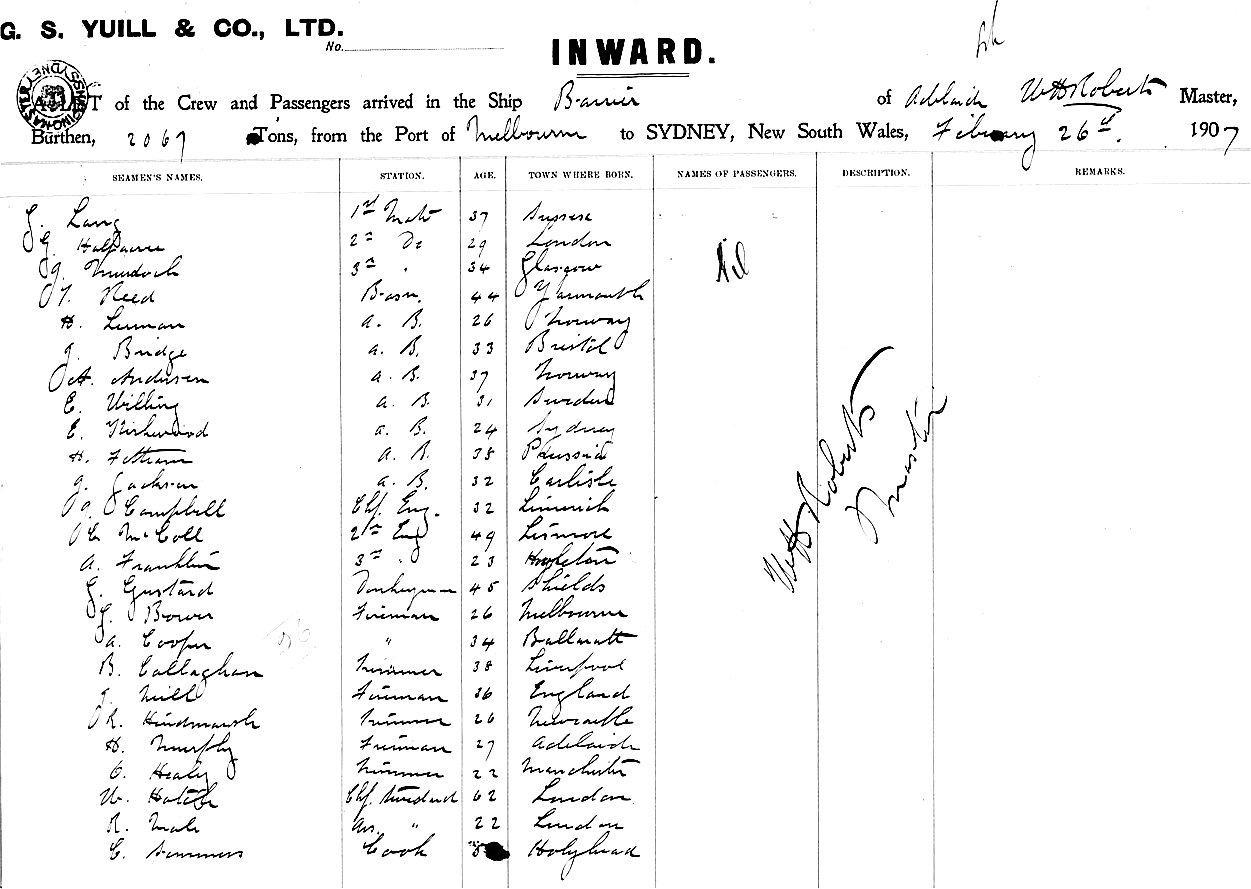 G. S. YUILL & CO., LTD.
No.
INWARD.
SHIPPING MASTER SYDNEY
A LIST of the Crew and Passengers arrived in the Ship Barrier of Adelaide WH Roberts Master,
Burthen, 2067 Tons, from the Port of Melbourne to SYDNEY, New South Wales, February 26th 1907
SEAMEN'S NAMES. STATION. AGE. TOWN WHERE BORN. NAMES OF PASSENGERS. DESCRIPTION. REMARKS.
Lang 1st Mate 37 Sussex
2nd Do 29 London Nil
Murdoch 3rd " 34 Glasgow
T. Reed Bosn. 44 Yarmouth
H. a. B. 26 Norway
J. Bridge a. B. 33 Bristol
A. Andersen a. B. 37 Norway
E. Willing a. B. 31 Sweden
E. Kirkwood a. B. 24 Sydney
H. a. B. 38 Prussia
J. Jackson a. B. 32 Carlisle
Campbell Chf. Eng. 32 Limerick
C. McColl 2nd Eng 49 Lismore
A. Franklin 3rd " 23
G. Gustard Donkeyman 45 Shields
Bower Fireman 26 Melbourne
A. Cooper " 34 Ballaratt
B. Callaghan Trimmer 38 Liverpool
J. Neill Fireman 36 England
R. Hindmarsh Trimmer 26 Newcastle
H. Murphy Fireman 27 Adelaide
C. Healy Trimmer 22 Manchester
W. Hatch Chf. Steward 62 London
R. Male Ass. " 22 London
C. Summers Cook Holyhead
WH Roberts
Master